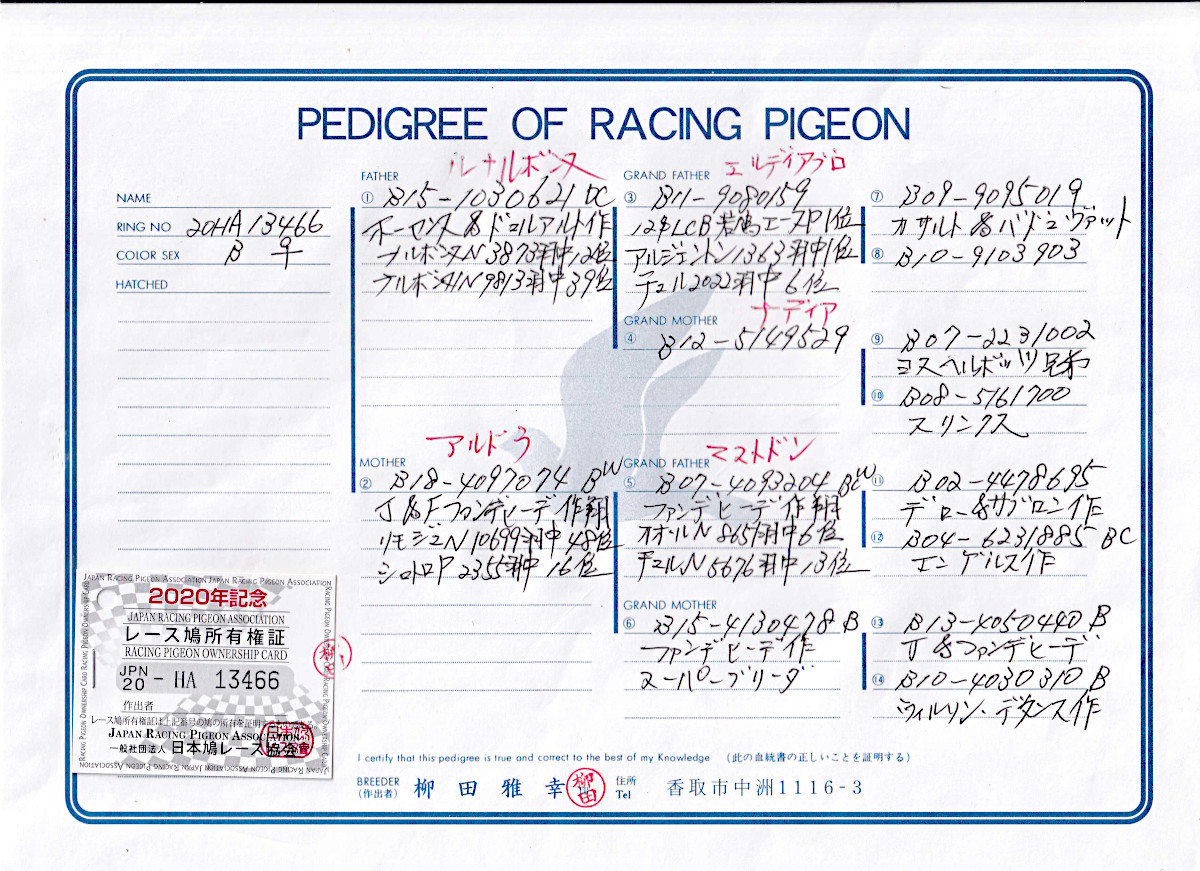 PEDIGREE OF RACING PIGEON
NAME
RING NO 20HA13466
COLOR SEX B ♀
HATCHED
ルナルボンヌ
FATHER
① B15-1030621 DC
ホーマンス&ドュルアルト作
ナルボンヌN 3873羽中12位
ナルボンヌIN 9813羽中39位
アルドラ
MOTHER
② B18-4097074 BW
J&Fファンデヒーデ作翔
リモジュN 10699羽中48位
シャトロP 2355羽中16位
エルディアブロ
GRAND FATHER
③ B11-9080159
12年LCB若鳩エースP1位
アルジェントン1363羽中1位
チュル2022羽中6位
ナディア
GRAND MOTHER
④ B12-5149529
マストドン
GRAND FATHER
⑤ B07-4093204 BCW
ファンデヒーデ作翔
オオールN 865羽中6位
チュルN 5676羽中13位
GRAND MOTHER
⑥ B15-4130478 B
ファンデヒーデ作
スーパーブリーダ
⑦ B09-9095019
カサルト&バドュヴァット
⑧ B10-9103903
⑨ B07-2231002
ヨスヘルボッツ兄弟
⑩ B08-5161700
スリンクス
⑪ B02-4478695
デロー&サブロン作
⑫ B04-6231885 BC
エンゲルス作
⑬ B13-4050440 B
J&ファンデヒーデ
⑭ B10-4030310 B
ウィルソン・デタンス作
JAPAN RACING PIGEON ASSOCIATION JAPAN RACING PIGEON ASSOCIATION
RACING PIGEON OWNERSHIP CARD
2020年記念
JAPAN RACING PIGEON ASSOCIATION
レース鳩所有権証
RACING PIGEON OWNERSHIP CARD
JPN 20 - HA 13466
作出者
レース鳩所有権証は上記番号の鳩の所有を証明する
JAPAN RACING PIGEON ASSOCIATION
一般社団法人 日本鳩レース協会
I certify that this pedigree is true and correct to the best of my Knowledge (此の血統書の正しいことを証明する)
BREEDER (作出者) 柳田雅幸 柳田 住所 Tel 香取市中洲1116-3